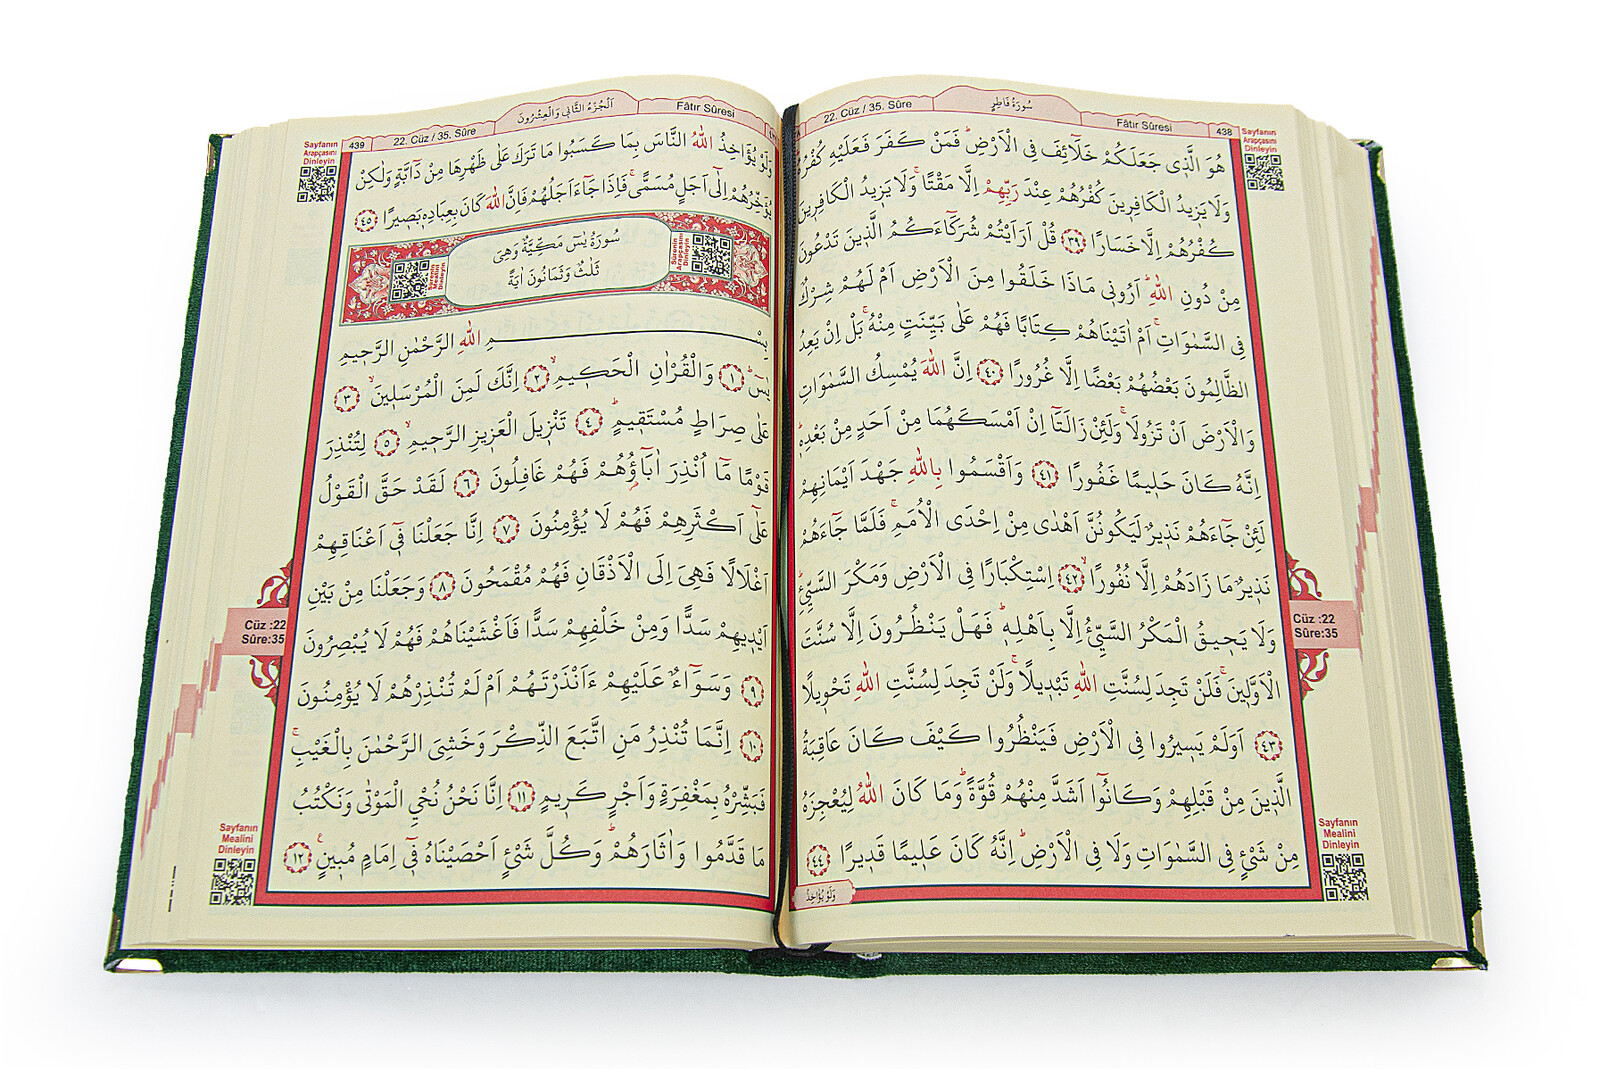 سُورَةُ فَاطِرٍ
22. Cüz / 35. Sûre
Fâtır Sûresi
438
Sayfanın
Arapçasını
Dinleyin
هُوَ الَّذ۪ي جَعَلَكُمْ خَلَٓائِفَ فِي الْاَرْضِۜ فَمَنْ كَفَرَ فَعَلَيْهِ كُفْرُهُۜ
وَلَا يَز۪يدُ الْكَافِر۪ينَ كُفْرُهُمْ عِنْدَ رَبِّهِمْ اِلَّا مَقْتًاۚ وَلَا يَز۪يدُ الْكَافِر۪ينَ
كُفْرُهُمْ اِلَّا خَسَارًا ﴿٣٩﴾ قُلْ اَرَاَيْتُمْ شُرَكَٓاءَكُمُ الَّذ۪ينَ تَدْعُونَ
مِنْ دُونِ اللّٰهِۜ اَرُون۪ي مَاذَا خَلَقُوا مِنَ الْاَرْضِ اَمْ لَهُمْ شِرْكٌ
فِي السَّمٰوَاتِۚ اَمْ اٰتَيْنَاهُمْ كِتَابًا فَهُمْ عَلٰى بَيِّنَتٍ مِنْهُۚ بَلْ اِنْ يَعِدُ
الظَّالِمُونَ بَعْضُهُمْ بَعْضًا اِلَّا غُرُورًا ﴿٤٠﴾ اِنَّ اللّٰهَ يُمْسِكُ السَّمٰوَاتِ
وَالْاَرْضَ اَنْ تَزُولَاۚ وَلَئِنْ زَالَتَٓا اِنْ اَمْسَكَهُمَا مِنْ اَحَدٍ مِنْ بَعْدِه۪ۜ
اِنَّهُ كَانَ حَل۪يمًا غَفُورًا ﴿٤١﴾ وَاَقْسَمُوا بِاللّٰهِ جَهْدَ اَيْمَانِهِمْ
لَئِنْ جَٓاءَهُمْ نَذ۪يرٌ لَيَكُونُنَّ اَهْدٰى مِنْ اِحْدَى الْاُمَمِۚ فَلَمَّا جَٓاءَهُمْ
نَذ۪يرٌ مَا زَادَهُمْ اِلَّا نُفُورًاۙ ﴿٤٢﴾ اِسْتِكْبَارًا فِي الْاَرْضِ وَمَكْرَ السَّيِّئِۜ
وَلَا يَح۪يقُ الْمَكْرُ السَّيِّئُ اِلَّا بِاَهْلِه۪ۜ فَهَلْ يَنْظُرُونَ اِلَّا سُنَّتَ
الْاَوَّل۪ينَۚ فَلَنْ تَجِدَ لِسُنَّتِ اللّٰهِ تَبْد۪يلًاۚ وَلَنْ تَجِدَ لِسُنَّتِ اللّٰهِ تَحْو۪يلًا
﴿٤٣﴾ اَوَلَمْ يَس۪يرُوا فِي الْاَرْضِ فَيَنْظُرُوا كَيْفَ كَانَ عَاقِبَةُ
الَّذ۪ينَ مِنْ قَبْلِهِمْ وَكَانُٓوا اَشَدَّ مِنْهُمْ قُوَّةًۜ وَمَا كَانَ اللّٰهُ لِيُعْجِزَهُ
مِنْ شَيْءٍ فِي السَّمٰوَاتِ وَلَا فِي الْاَرْضِۜ اِنَّهُ كَانَ عَل۪يمًا قَد۪يرًا ﴿٤٤﴾
وَلَوْ يُؤَاخِذُ
Cüz :22
Sûre:35
Sayfanın
Mealini
Dinleyin
اَلْجُزْءُ الثَّانِي وَالْعِشْرُونَ
Fâtır Sûresi
22. Cüz / 35. Sûre
439
Sayfanın
Arapçasını
Dinleyin
وَلَوْ يُؤَاخِذُ اللّٰهُ النَّاسَ بِمَا كَسَبُوا مَا تَرَكَ عَلٰى ظَهْرِهَا مِنْ دَٓابَّةٍ وَلٰكِنْ
يُؤَخِّرُهُمْ اِلٰٓى اَجَلٍ مُسَمًّىۚ فَاِذَا جَٓاءَ اَجَلُهُمْ فَاِنَّ اللّٰهَ كَانَ بِعِبَادِه۪ بَص۪يرًا ﴿٤٥﴾
سُورَةُ يٰسٓ مَكِّيَّةٌ وَهِيَ
ثَلٰثٌ وَثَمَانُونَ اٰيَةً
Sûrenin
Arapçasını
Dinleyin
Sûrenin
Mealini
Dinleyin
بِسْمِ اللّٰهِ الرَّحْمٰنِ الرَّح۪يمِ
يٰسٓۜ ﴿١﴾ وَالْقُرْاٰنِ الْحَك۪يمِۙ ﴿٢﴾ اِنَّكَ لَمِنَ الْمُرْسَل۪ينَۙ ﴿٣﴾
عَلٰى صِرَاطٍ مُسْتَق۪يمٍۜ ﴿٤﴾ تَنْز۪يلَ الْعَز۪يزِ الرَّح۪يمِۙ ﴿٥﴾ لِتُنْذِرَ
قَوْمًا مَٓا اُنْذِرَ اٰبَٓاؤُ۬هُمْ فَهُمْ غَافِلُونَ ﴿٦﴾ لَقَدْ حَقَّ الْقَوْلُ
عَلٰٓى اَكْثَرِهِمْ فَهُمْ لَا يُؤْمِنُونَ ﴿٧﴾ اِنَّا جَعَلْنَا ف۪ٓي اَعْنَاقِهِمْ
اَغْلَالًا فَهِيَ اِلَى الْاَذْقَانِ فَهُمْ مُقْمَحُونَ ﴿٨﴾ وَجَعَلْنَا مِنْ بَيْنِ
اَيْد۪يهِمْ سَدًّا وَمِنْ خَلْفِهِمْ سَدًّا فَاَغْشَيْنَاهُمْ فَهُمْ لَا يُبْصِرُونَ
﴿٩﴾ وَسَوَٓاءٌ عَلَيْهِمْ ءَاَنْذَرْتَهُمْ اَمْ لَمْ تُنْذِرْهُمْ لَا يُؤْمِنُونَ
﴿١٠﴾ اِنَّمَا تُنْذِرُ مَنِ اتَّبَعَ الذِّكْرَ وَخَشِيَ الرَّحْمٰنَ بِالْغَيْبِۚ
فَبَشِّرْهُ بِمَغْفِرَةٍ وَاَجْرٍ كَر۪يمٍ ﴿١١﴾ اِنَّا نَحْنُ نُحْيِ الْمَوْتٰى وَنَكْتُبُ
مَا قَدَّمُوا وَاٰثَارَهُمْۜ وَكُلَّ شَيْءٍ اَحْصَيْنَاهُ ف۪ٓي اِمَامٍ مُب۪ينٍ۟ ﴿١٢﴾
Cüz :22
Sûre:35
Sayfanın
Mealini
Dinleyin